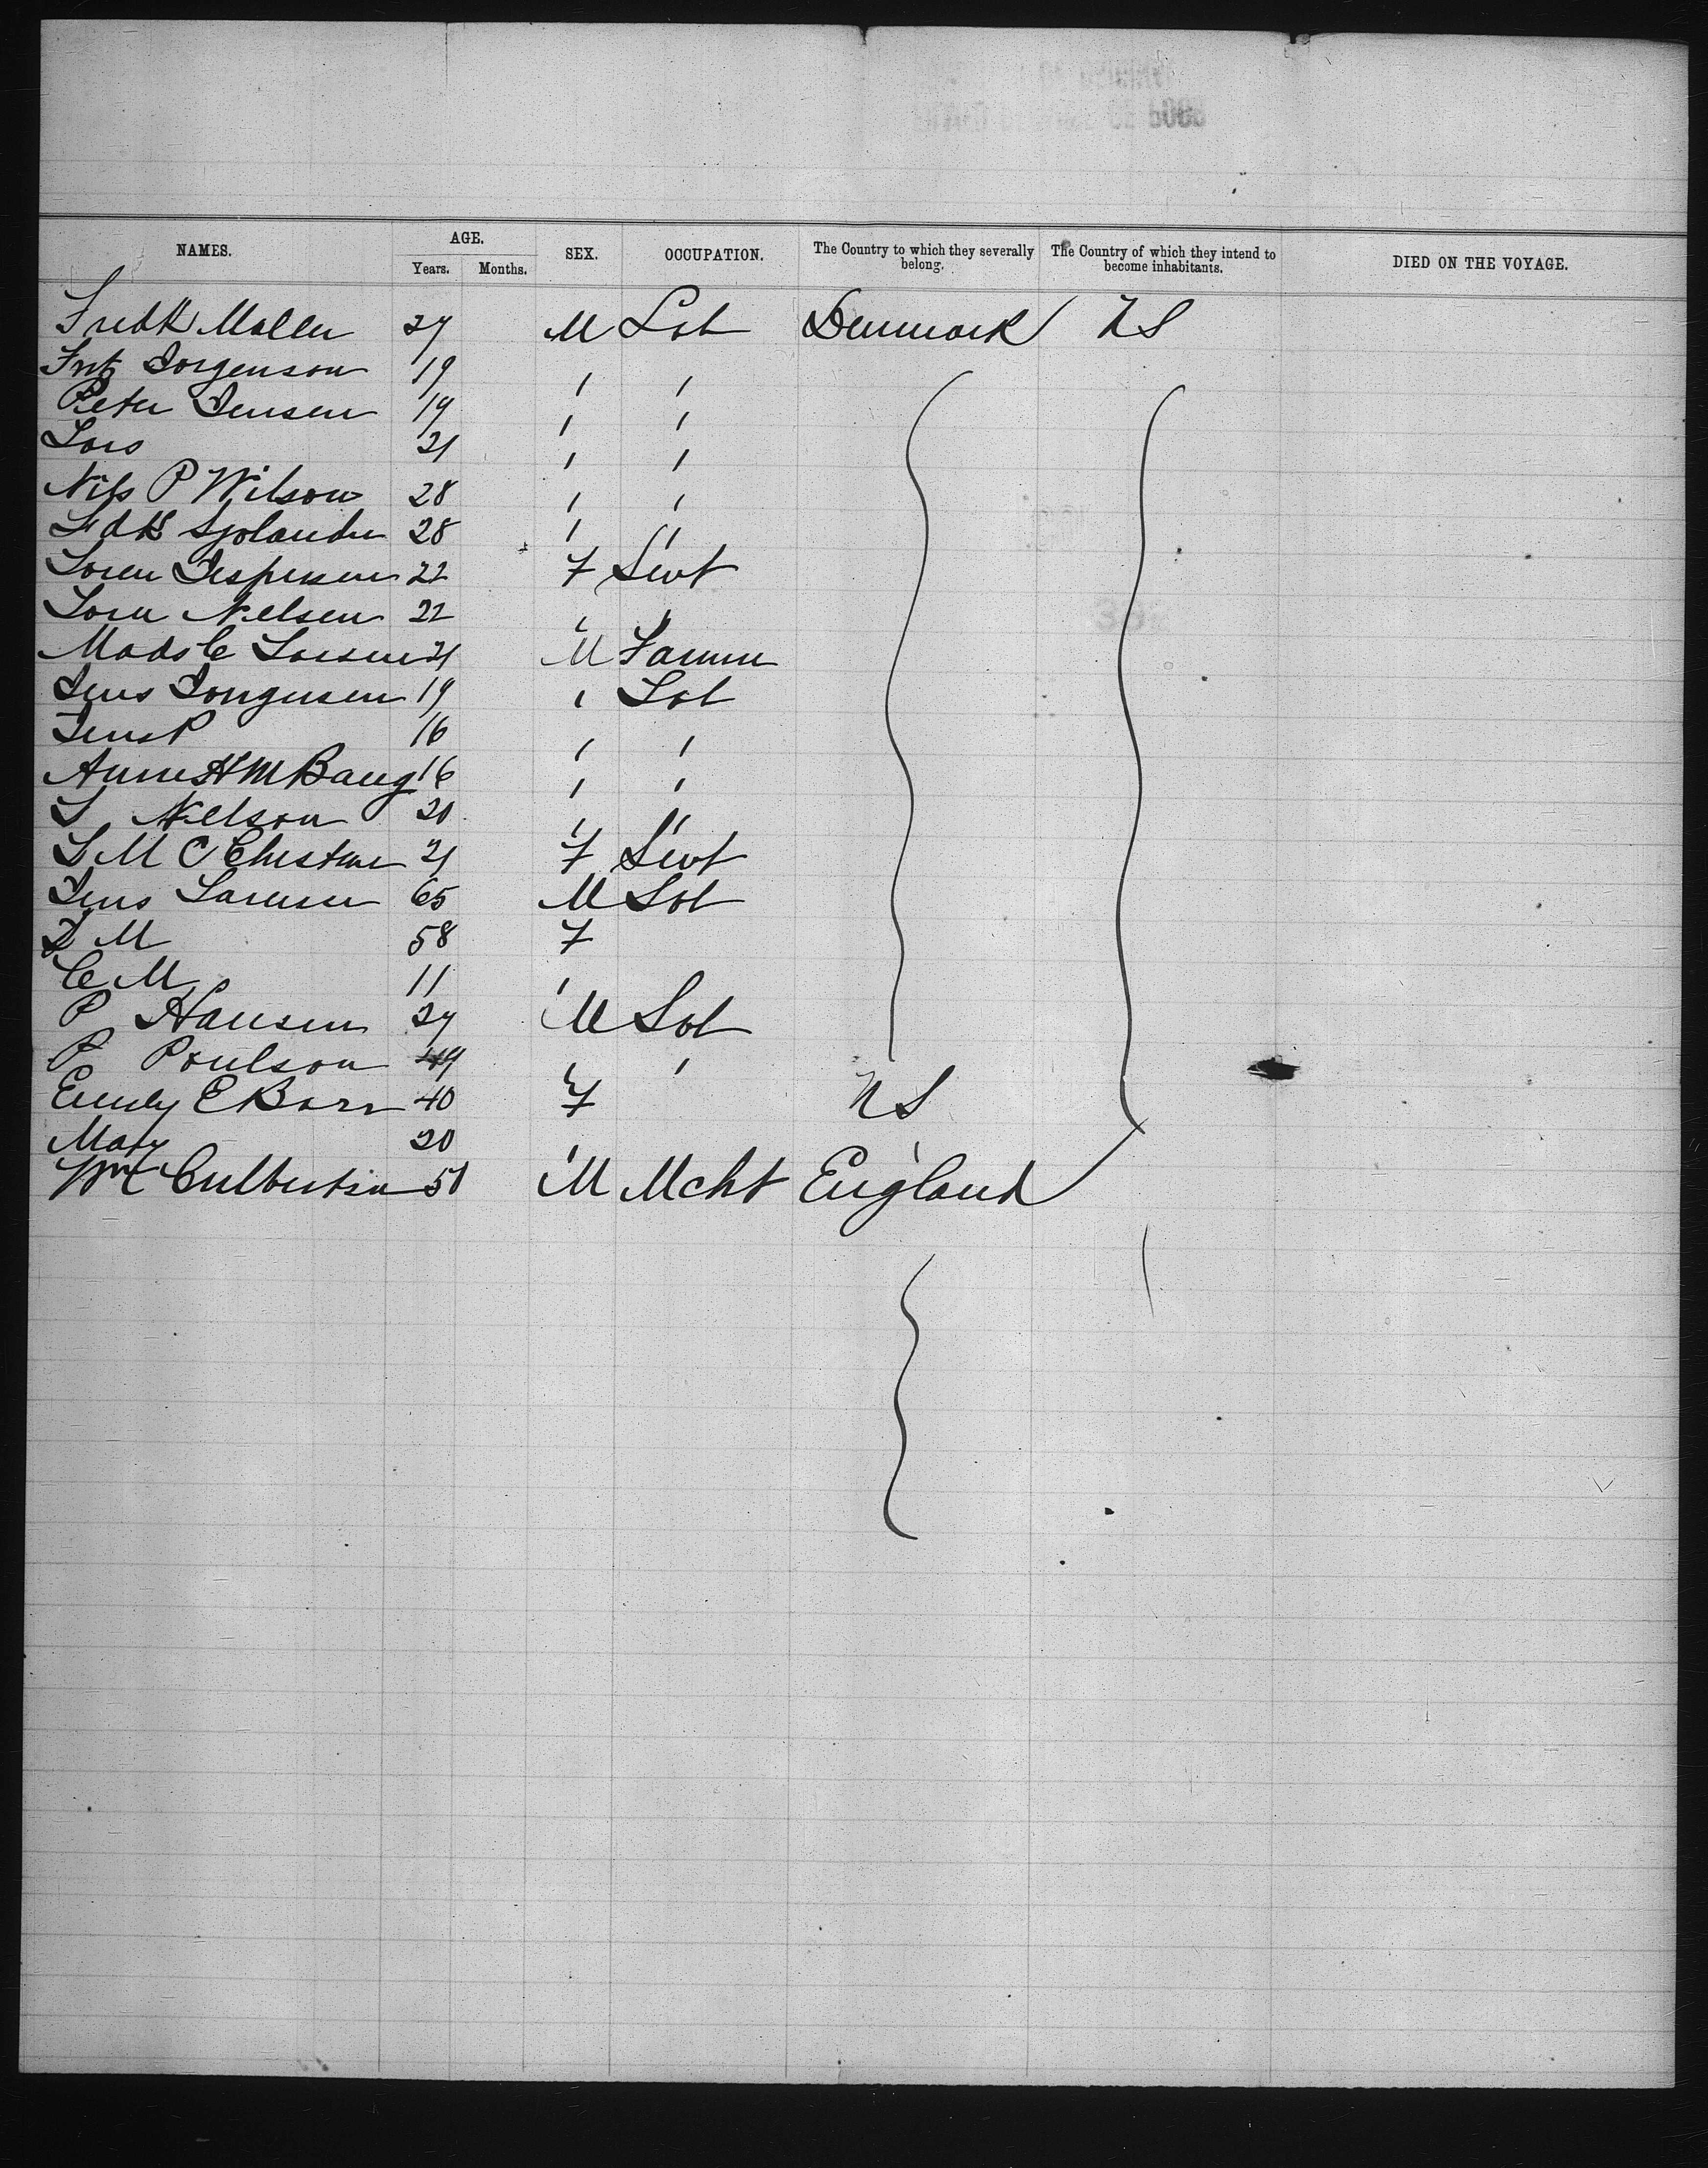 NAMES. AGE. SEX. OCCUPATION. The Country to which they severally belong. The Country of which they intend to become inhabitants. DIED ON THE VOYAGE.
Years. Months.
Fredk Moller 27 M Lab Denmark US
Fritz Jorgenson 19 " "
Peter Jensen 19 " "
Lars 21 " "
Nils P Wilson 28 " "
Fdk Sjolander 28 " "
Soren Jespersen 22 F Sevt
Nielsen 22 " "
Mads C Larsen 21 M Farmer
Jens Jorgensen 19 " Lab
Jens P 16 " "
H M Bang 16 " "
S Nelson 20 " "
M C 21 F Sevt
Jens Larsen 65 M Lab
D M 58 F
C M 11 "
P Hansen 27 M Lab
P Poulson 49 " "
Emily E Barr 40 F US
Mary 20 " "
Wm Culbertson 50 M Mcht England